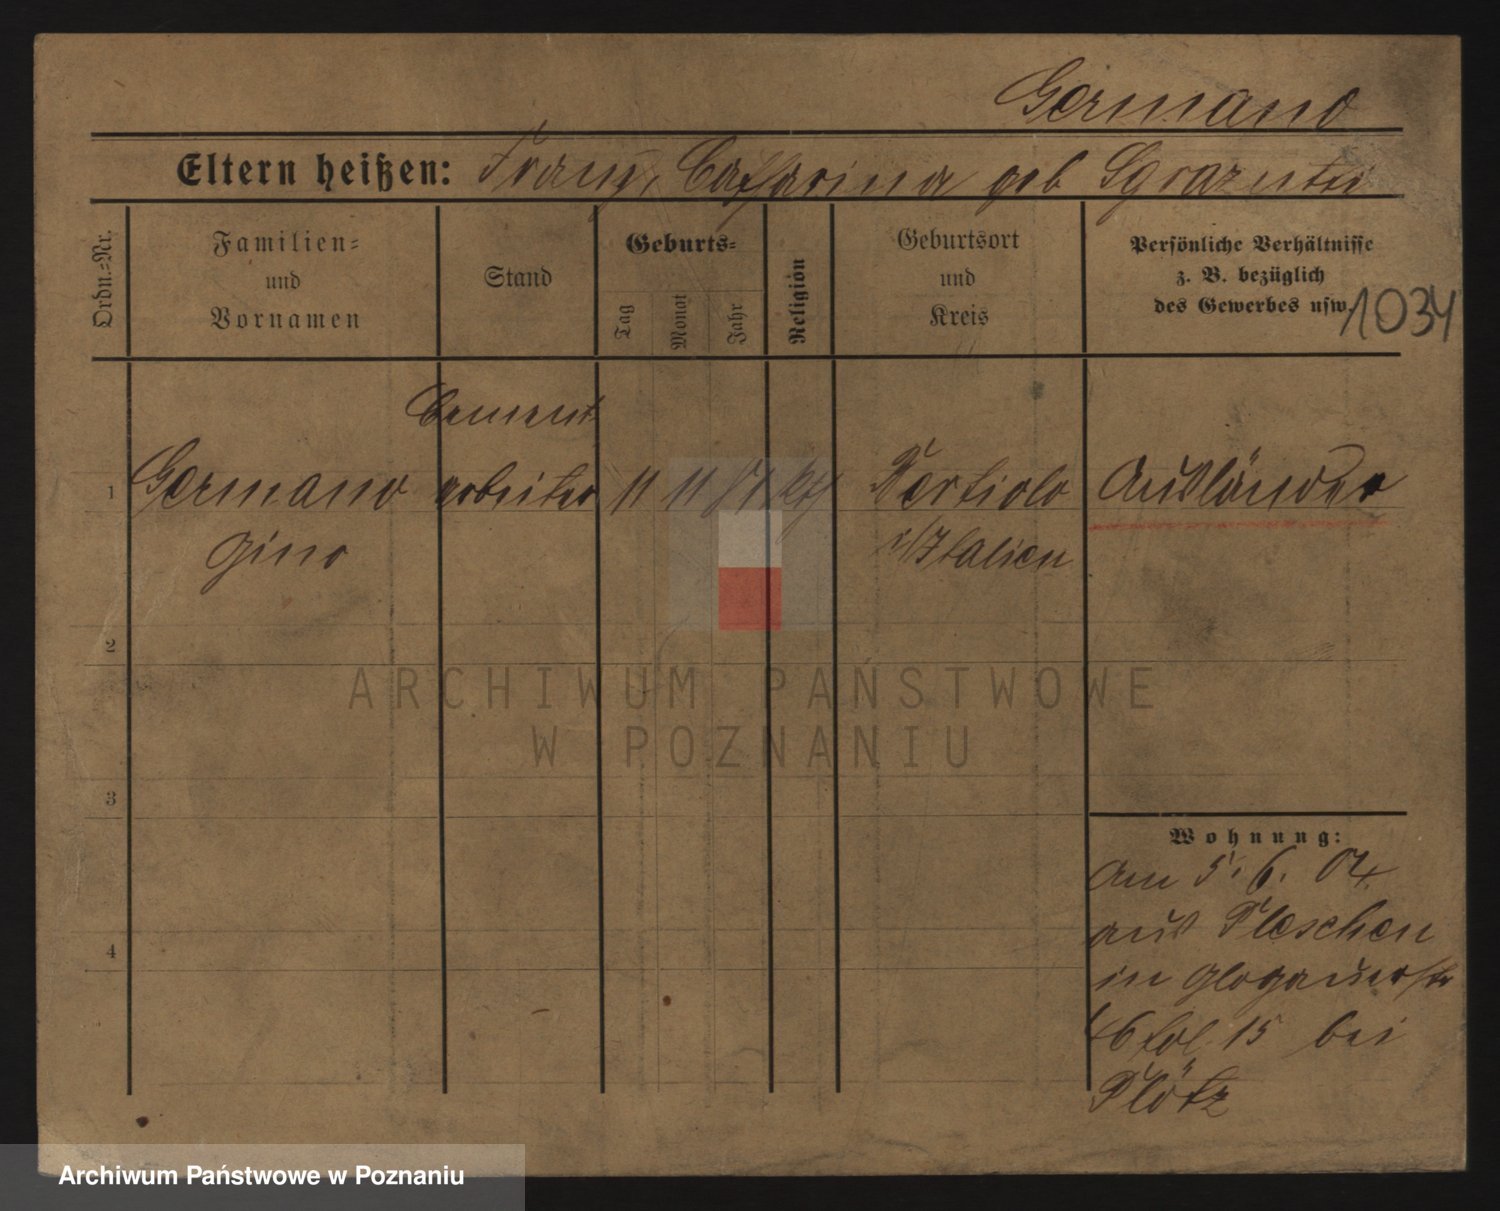 Germano
Eltern heißen: Franz, Catharina geb Sgrazutti
Ordn.=Nr.
Familien=
und
Vornamen
Stand
Geburts=
Tag
Monat
Jahr
Religion
Geburtsort
und
Kreis
Persönliche Verhältnisse
z. B. bezüglich
des Gewerbes usw.
1034
Cement
1 Germano arbeiter 11 11 kth Bertiolo Ausländer
Gino i/Italien
2
3
4
Wohnung:
Am 5. 6. 04
aus Pleschen
in Glogauerstr
bei
Plötz
ARCHIWUM PAŃSTWOWE
W POZNANIU
Archiwum Państwowe w Poznaniu